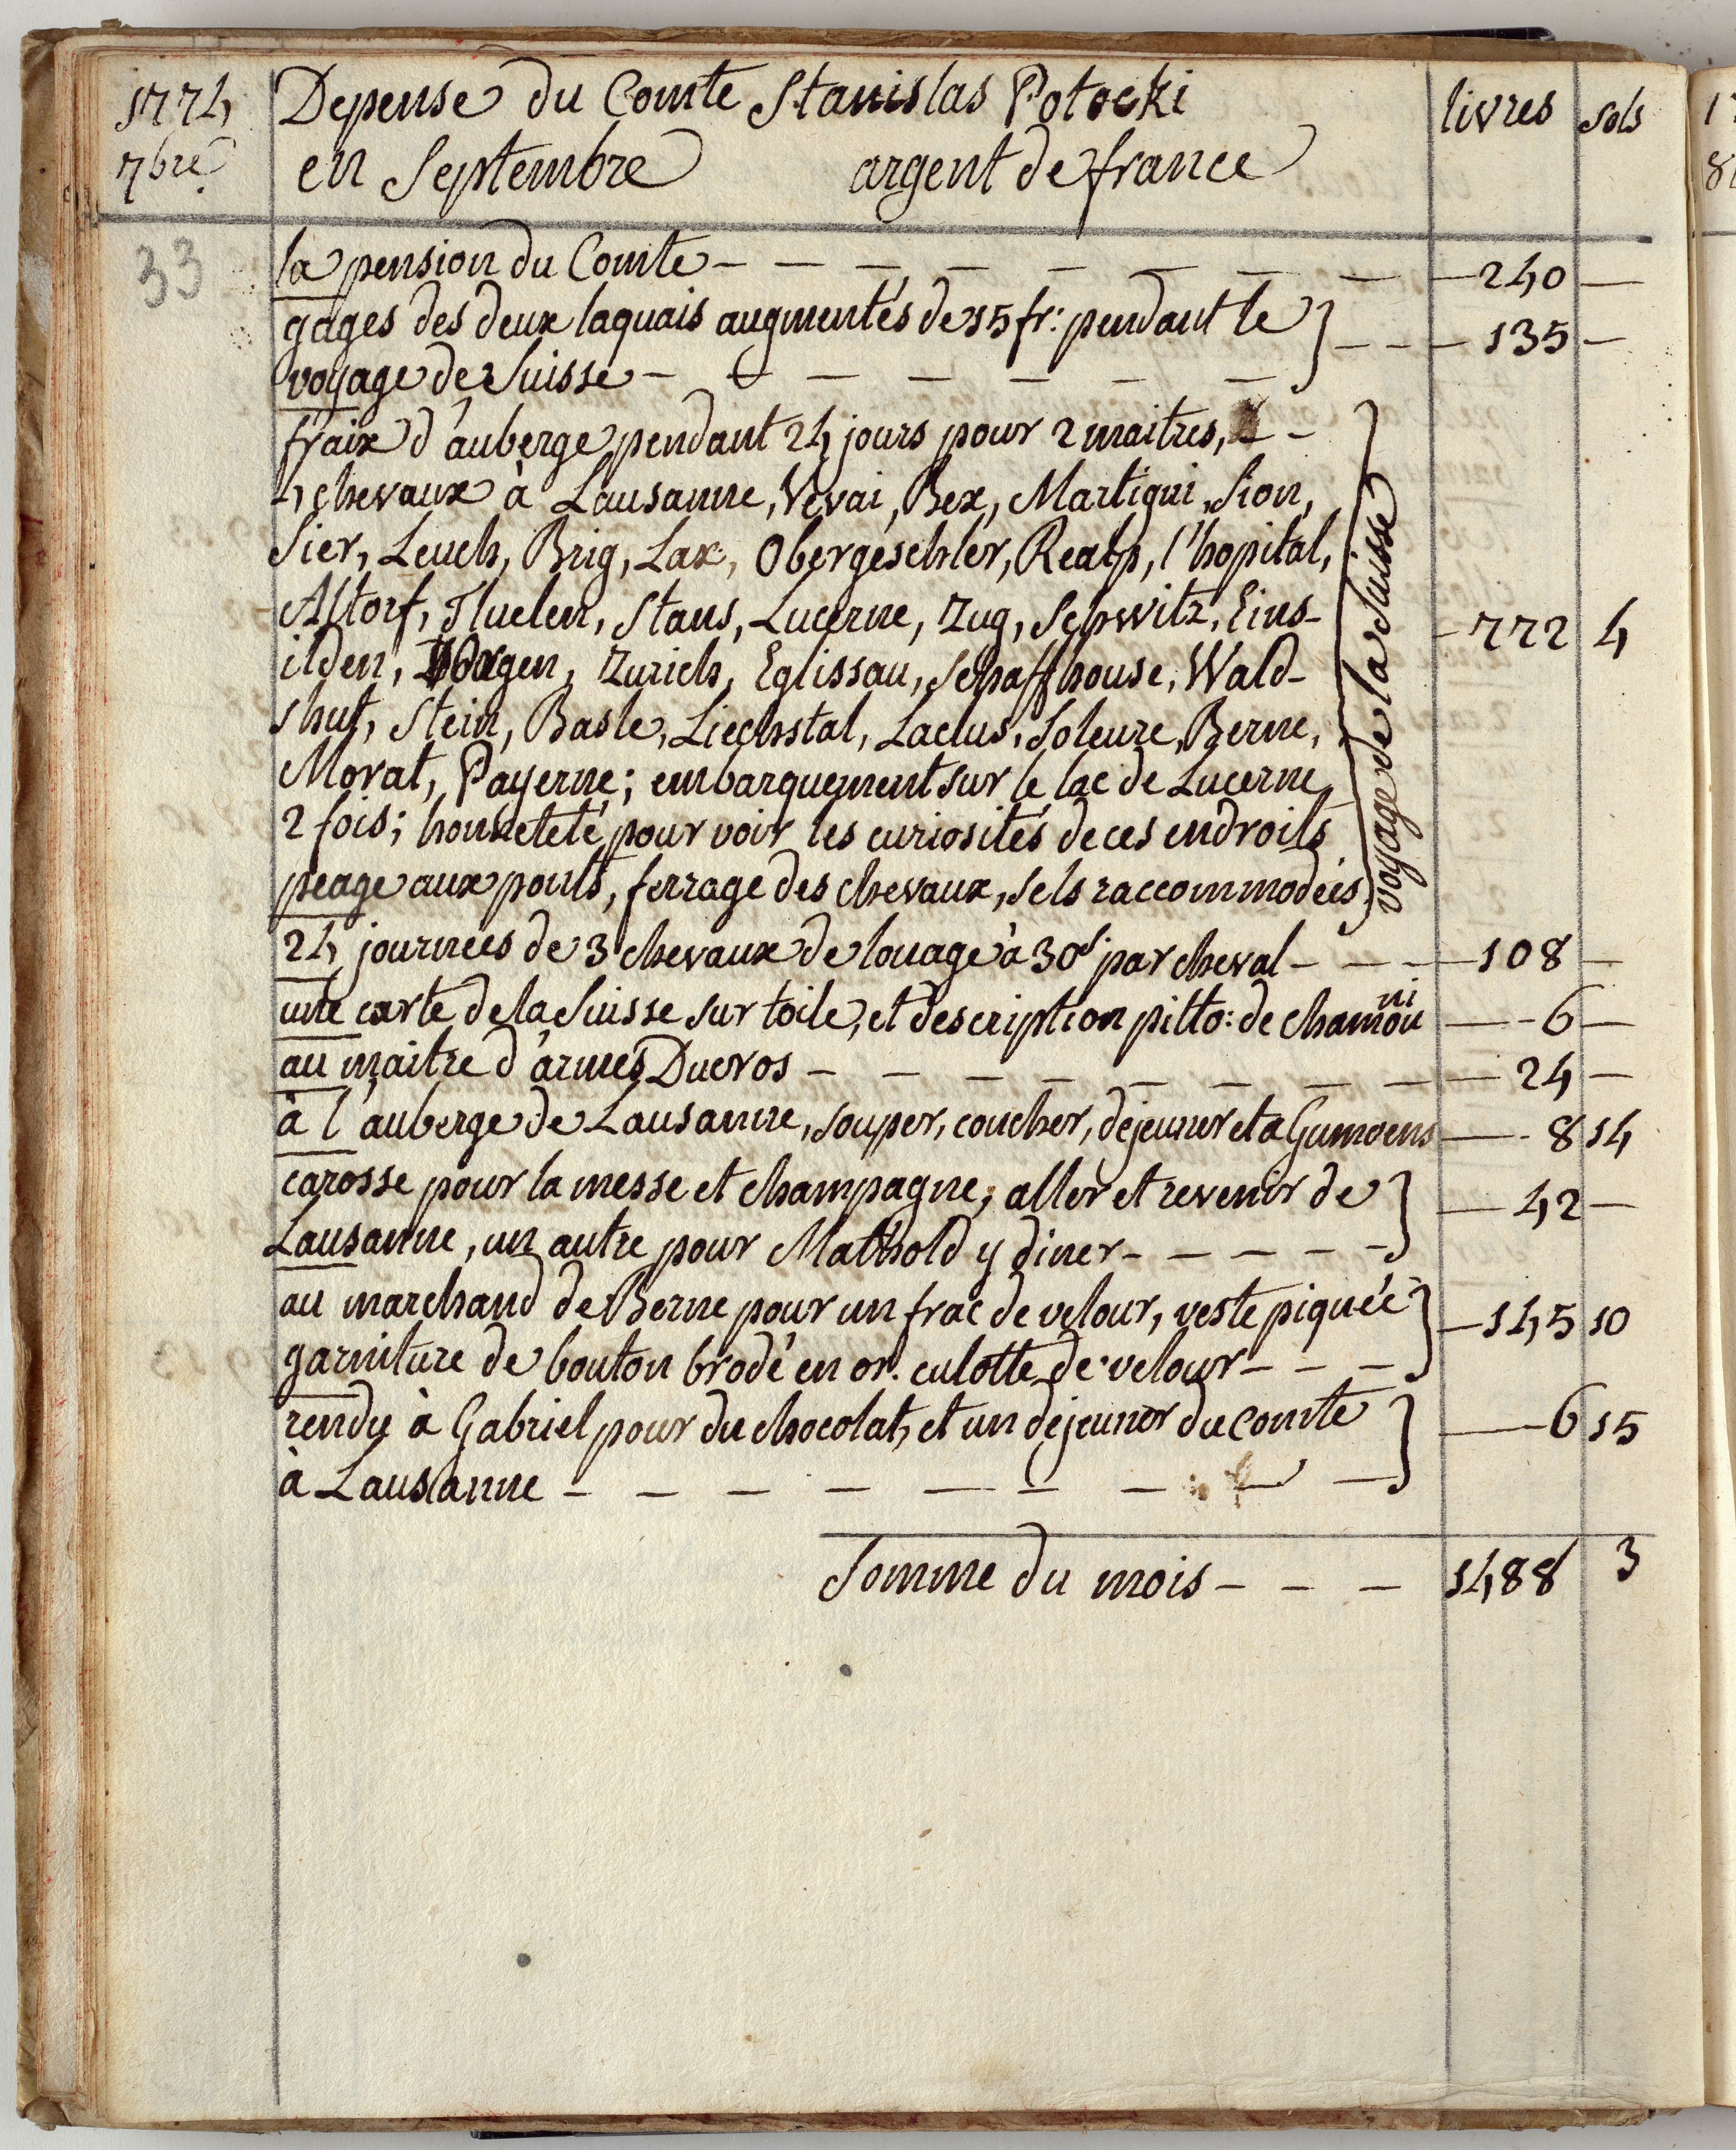 1774 Depense du Comte Stanislas Potocki livres sols
7bre. en Septembre argent de france
33
la pension du Comte — — — — — — — — 240 —
gages des deux laquais augmentés de 15 fr: pendant le
voyage de Suisse — — — — — — — 135 —
fraix d'auberge pendant 24 jours pour 2 maitres,
4 chevaux à Lausanne, Vevai, Bex, Martigni, Sion,
Sier, Leuch, Brig, Lax, Obergeschler, Realp, l'hopital,
Altorf, Fluelen, Stans, Lucerne, Zug, Schwitz, Eins-
ilden, Horgen, Zurich, Eglissau, Schaffhouse, Wald-
shut, Stein, Basle, Liechstal, Laclus, Soleure, Berne,
Morat, Payerne; embarquement sur le lac de Lucerne
2 fois; honneteté pour voir les curiosités de ces endroits
peage aux ponts, ferrage des chevaux, sels raccommodées
voyage de la Suisse
772 4
24 journées de 3 chevaux de louage à 30s par cheval — — — 108 —
une carte de la Suisse sur toile, et description pitto: de chamouni — 6 —
au maitre d'armes Ducros — — — — — — — — 24 —
à l'auberge de Lausanne, souper, coucher, dejeuner et a Gumoens — 8 14
carosse pour la messe et champagne, aller et revenir de
Lausanne, un autre pour Mathold y diner — — — — — 42 —
au marchand de Berne pour un frac de velour, veste piquée
garniture de bouton brodé en or. culotte de velour — — — 145 10
rendu à Gabriel pour du chocolat, et un dejeuner du Comte
à Lausanne — — — — — — — — — 6 15
Somme du mois — — — 1488 3